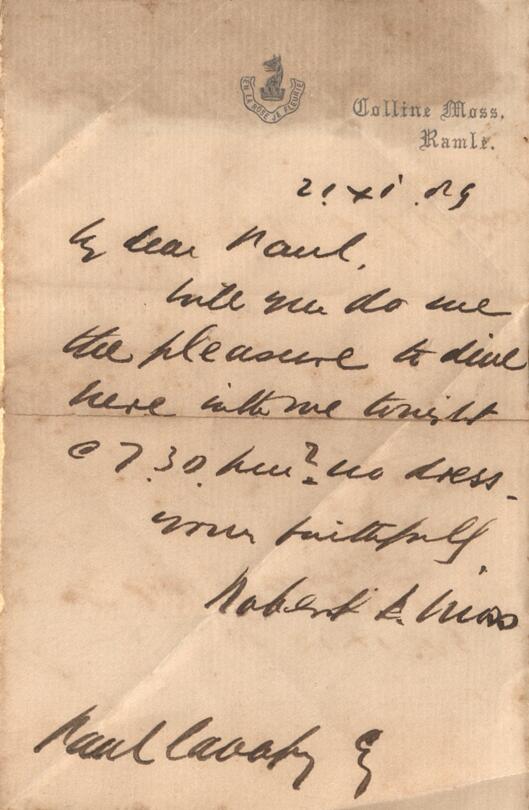 EN LA ROSE JE FLEURIE
Colline Moss,
Ramle.
21.XI.89
My dear Paul,
Will you do me
the pleasure to dine
here with me tonight
@ 7.30. pm? no dress.
yours faithfully
Robert J. Moss
Paul Cavafy Esq